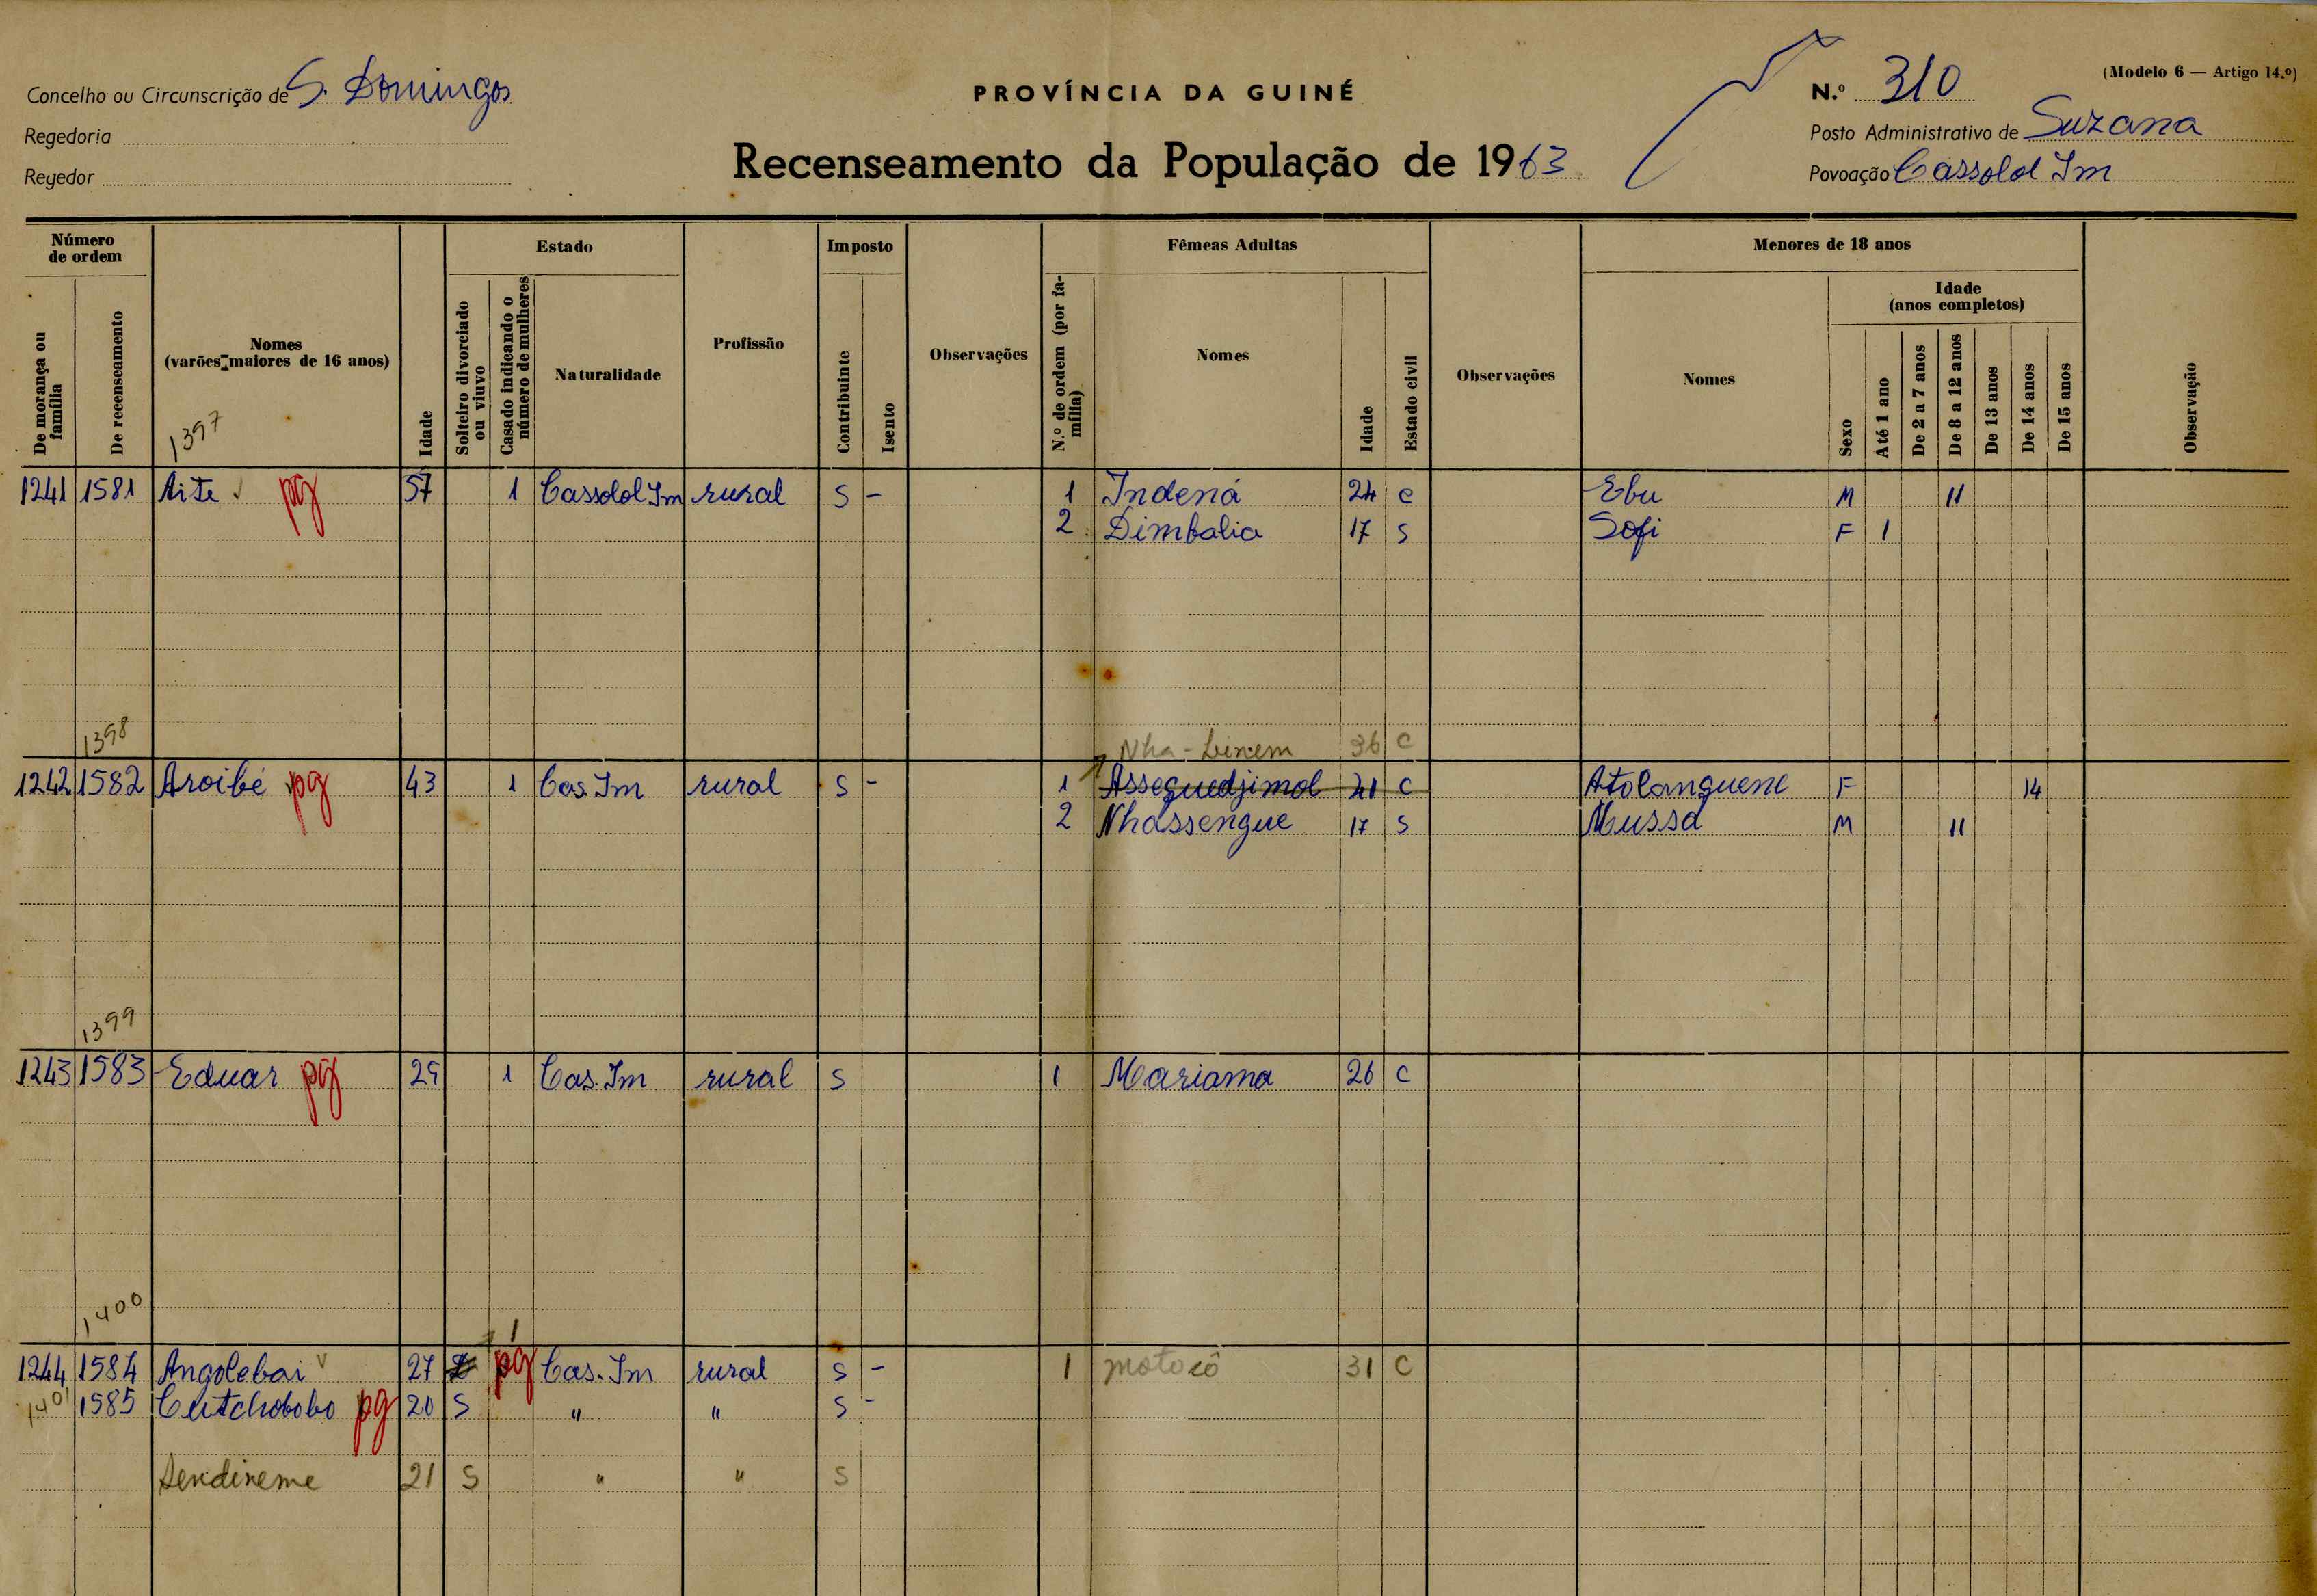 Concelho ou Circunscrição de S. Domingos
Regedoria
Regedor
PROVÍNCIA DA GUINÉ
Recenseamento da População de 1963
(Modelo 6 — Artigo 14.º)
N.º 310
Posto Administrativo de Suzana
Povoação Cassolol Im
Número de ordem
De morança ou família
De recenseamento
Nomes
(varões maiores de 16 anos)
1397
Idade
Estado
Solteiro divorciado ou viuvo
Casado indicando o número de mulheres
Naturalidade
Profissão
Imposto
Contribuinte
Isento
Observações
Fêmeas Adultas
N.º de ordem (por família)
Nomes
Idade
Estado civil
Observações
Menores de 18 anos
Nomes
Sexo
Idade
(anos completos)
Até 1 ano
De 2 a 7 anos
De 8 a 12 anos
De 13 anos
De 14 anos
De 15 anos
Observação
1241 1581 Aite pg 57 1 Cassolol Im rural S - 1 Indená 24 c Ebu M 11
2 Dimbalia 17 S Sofi F 1
1398 Nha-Linem 36 C
1242 1582 Aroibé pg 43 1 Cas. Im rural S - 1 Asseguedjimol 21 C Atolanguene F 14
2 Nhassengue 17 S Mussa M 11
1399
1243 1583 Eduar pg 29 1 Cas. Im rural S 1 Mariama 26 C
1400
1
1244 1584 Angolebai 27 pg Cas. Im rural S - 1 motocô 31 C
1401 1585 Cutchobobo pg 20 S " " S -
Sendineme 21 S " " S